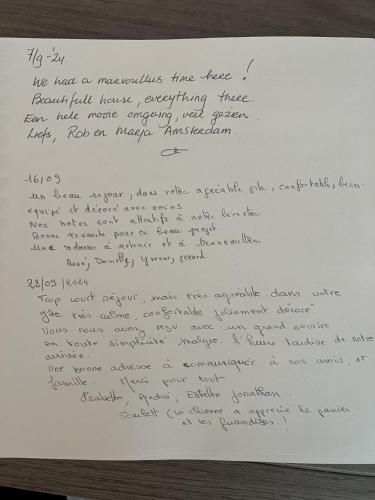 7/9-'24
We had a marvoullus time here!
Beautifull house, everything there.
Een hele mooie omgeving, veel gezien.
Liefs, Rob en Marja Amsterdam.
16/09
Un beau séjour, dans votre agréable gîte, confortable, bien
équipé et décoré avec soins
Nos hôtes sont attentifs à notre bien être
Bonne réussite pour ce beau projet
Une adresse à retenir et à transmettre
René, Danielle, Yvonne, Gérard
22/09/2024
Trop court séjour, mais très agréable dans votre
gîte très calme, confortable joliement décoré
Vous nous avez reçu avec un grand sourire
en toute simplicité malgré l'heure tardive de notre
arrivée.
Une bonne adresse à communiquer à nos amis, et
famille. Merci pour tout
Isabelle, André, Estelle Jonathan.
Scarlett (la chienne, a apprécié le panier
et les friandises.!